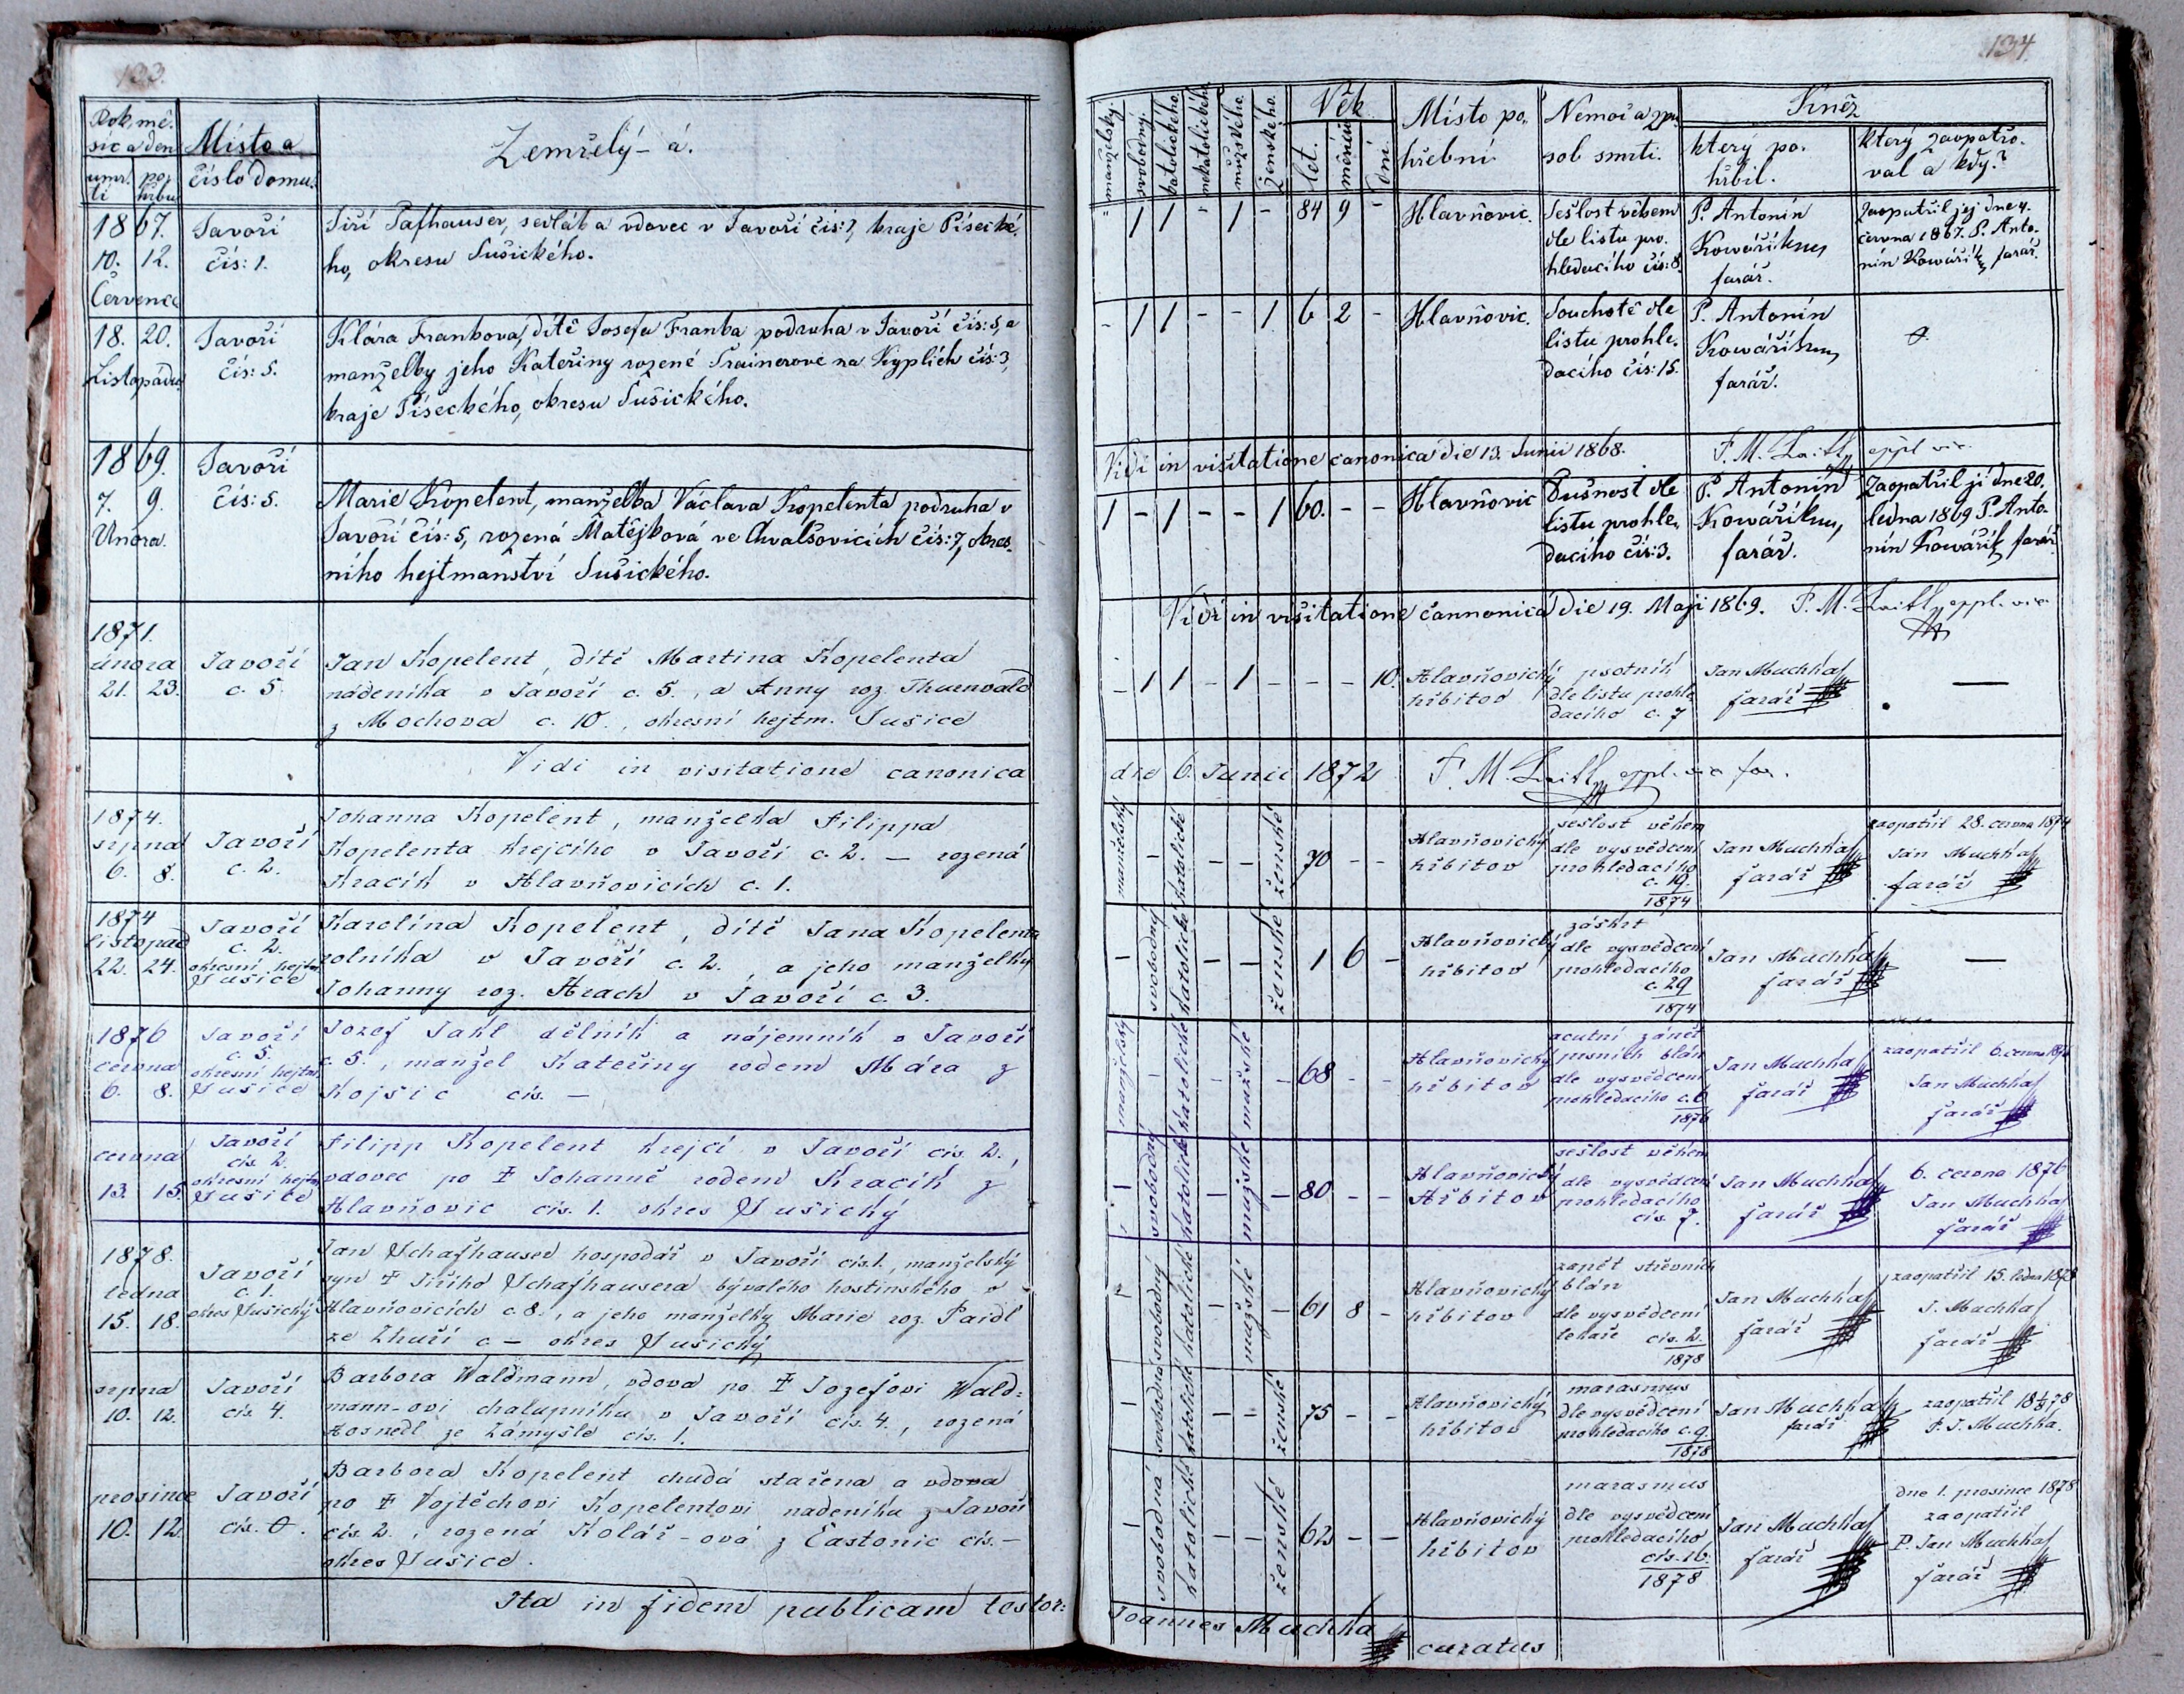 133.
Rok, mě-
síc a den
umr-
tí
po-
hřbu
Místo a
číslo domu.
Zemřelý - á.
1867.
10. 12.
Července
Javoří
čís: 1.
Jiří Šafhauser, sedlák a vdovec v Javoří čís: 1, kraje Písecké-
ho, okresu Sušického.
18. 20.
Listopadu
Javoří
čís: 5.
Klára Frankova, dítě Josefa Franka podruha v Javoří čís: 5, a
manželky jeho Kateřiny rozené Trainerové na Kyplích čís: 3,
kraje Píseckého, okresu Sušického.
1869.
7. 9.
Února.
Javoří
čís: 5.
Marie Kopelent, manželka Václava Kopelenta podruha v
Javoří čís: 5, rozená Matějková ve Chvalšovicích čís: 7, okres-
ního hejtmanství Sušického.
1871.
února
21. 23.
Javoří
c. 5
Jan Kopelent, dítě Martina Kopelenta
nádeníka v Javoří c. 5., a Anny roz. Thurnvald
z Mochova c. 10., okresní hejtm. Sušice
Vidi in visitatione canonica
1874.
srpna
6. 8.
Javoří
c. 2.
Johanna Kopelent, manželka Filippa
Kopelenta krejcího v Javoří c. 2. — rozená
Kracík v Hlavňovicích c. 1.
1874
listopad
22. 24.
Javoří
c. 2.
okresní hejtm.
Sušice
Karolína Kopelent, dítě Jana Kopelenta
rolníka v Javoří c. 2., a jeho manželky
Johanny roz. Hrach v Javoří c. 3.
1876
cervna
6. 8.
Javoří
c. 5.
okresní hejtm.
Sušice
Jozef Jakl dělník a nájemník v Javoří
c. 5., manžel Kateřiny rodem Mára z
Kojsic cis. —
cervna
13. 15.
Javoří
cis. 2.
okresní hejtm
Sušice
Filipp Kopelent krejcí v Javoří cis. 2.,
vdovec po ‡ Johanně rodem Kracík z
Hlavňovic cis. 1. okres Sušický
1878.
ledna
15. 18.
Javoří
c. 1.
okres Sušický
Jan Schafhauser hospodář v Javoří cis. 1., manželský
syn ‡ Jiřího Schafhausera bývalého hostinského v
Hlavňovicích c. 8., a jeho manželky Marie roz. Paidl
ze Zhuří c — okres Sušický
srpna
10. 12.
Javoří
cis. 4.
Barbora Waldmann, vdova po ‡ Jozefovi Wald=
mann-ovi chalupníku v Javoří cis. 4., rozená
Hosnedl ze Zámyšle cis. 1.
prosince
10. 12.
Javoří
cis. 0.
Barbora Kopelent chudá stařena a vdova
po ‡ Vojtěchovi Kopelentovi nadeníku z Javoří
cis. 2., rozená Kolář-ová z Častonic cis. —
okres Sušice.
Ita in fidem publicam testor:
134.
manželský.
svobodný.
katolického.
nekatolického.
mužského.
ženského.
Věk
let.
měsíců
dní.
Místo po-
hřební
Nemoc a způ-
sob smrti.
Kněz
který po-
hřbil.
který zaopatřo-
val a kdy?
" 1 1 - 1 - 84 9 -
Hlavňovic.
Sešlost věkem
dle listu pro-
hledacího čís: 8.
P. Antonín
Kowářík,
farář.
Zaopatřil jej dne 4.
června 1867. P. Anto-
nín Kowářík, farář.
- 1 1 - - 1 6 2 -
Hlavňovic.
Souchotě dle
listu prohle-
dacího čís: 15.
P. Antonín
Kowářík,
farář.
0.
Vidi in visitatione canonica die 13. Junii 1868.
1 - 1 - - 1 60. - -
Hlavňovic
Dušnost dle
listu prohle-
dacího čís: 3.
P. Antonín
Kowářík,
farář.
Zaopatřil ji dne 20.
ledna 1869 P. Anto-
nín Kowářík farář
Vidi in visitatione cannonica die 19. Maji 1869.
- 1 1 - 1 - - - 10.
Hlavňovický
hřbitov
psotník
dle listu prohle
dacího c. 7
Jan Muchka
farář
—
die 6. Junii 1872
manželský
-
katolické
- -
ženské
70 - -
Hlavňovický
hřbitov
sešlost věkem
dle vysvědcení
prohledacího
c. 19.
1874
Jan Muchka
farář
zaopatřil 28. cervna 1874
Jan Muchka
farář
-
svobodný
katolické
- -
ženské
1 6 -
Hlavňovický
hřbitov
záškrt
dle vysvědcení
prohledacího
c. 29
1874
Jan Muchka
farář
—
manželský
-
katolické
-
mužské
- 68 - -
Hlavňovický
hřbitov
acutní zánět
prsních blán
dle vysvědcení
prohledacího c. 6
1876
Jan Muchka
farář
zaopatřil 6. cervna 1876
Jan Muchka
farář
-
svobodný
katolické
-
mužské
- 80 - -
Hlavňovický
Hřbitov
sešlost věkem
dle vysvědcení
prohledacího
cis. 7.
Jan Muchka
farář
6. cervna 1876
Jan Muchka
farář
svobodný
katolické
-
mužské
- 61 8 -
Hlavňovický
hřbitov
zanět střevních
blán
dle vysvědcení
lekaře cis. 2.
1878
Jan Muchka
farář
zaopatřil 15. ledna 1878
J. Muchka
farář
-
svobodná
katolické
- -
ženské
75 - -
Hlavňovický
hřbitov
marasmus
dle vysvědcení
prohledacího c. 9
1878
Jan Muchka
farář
zaopatřil
P. J. Muchka.
-
svobodná
katolické
- -
ženské
62 - -
Hlavňovický
hřbitov
marasmus
dle vysvědcení
prohledacího
cis. 16.
1878
Jan Muchka
farář
dne 1. prosince 1878
zaopatřil
P. Jan Muchka
farář
Joannes Muchka
curatus